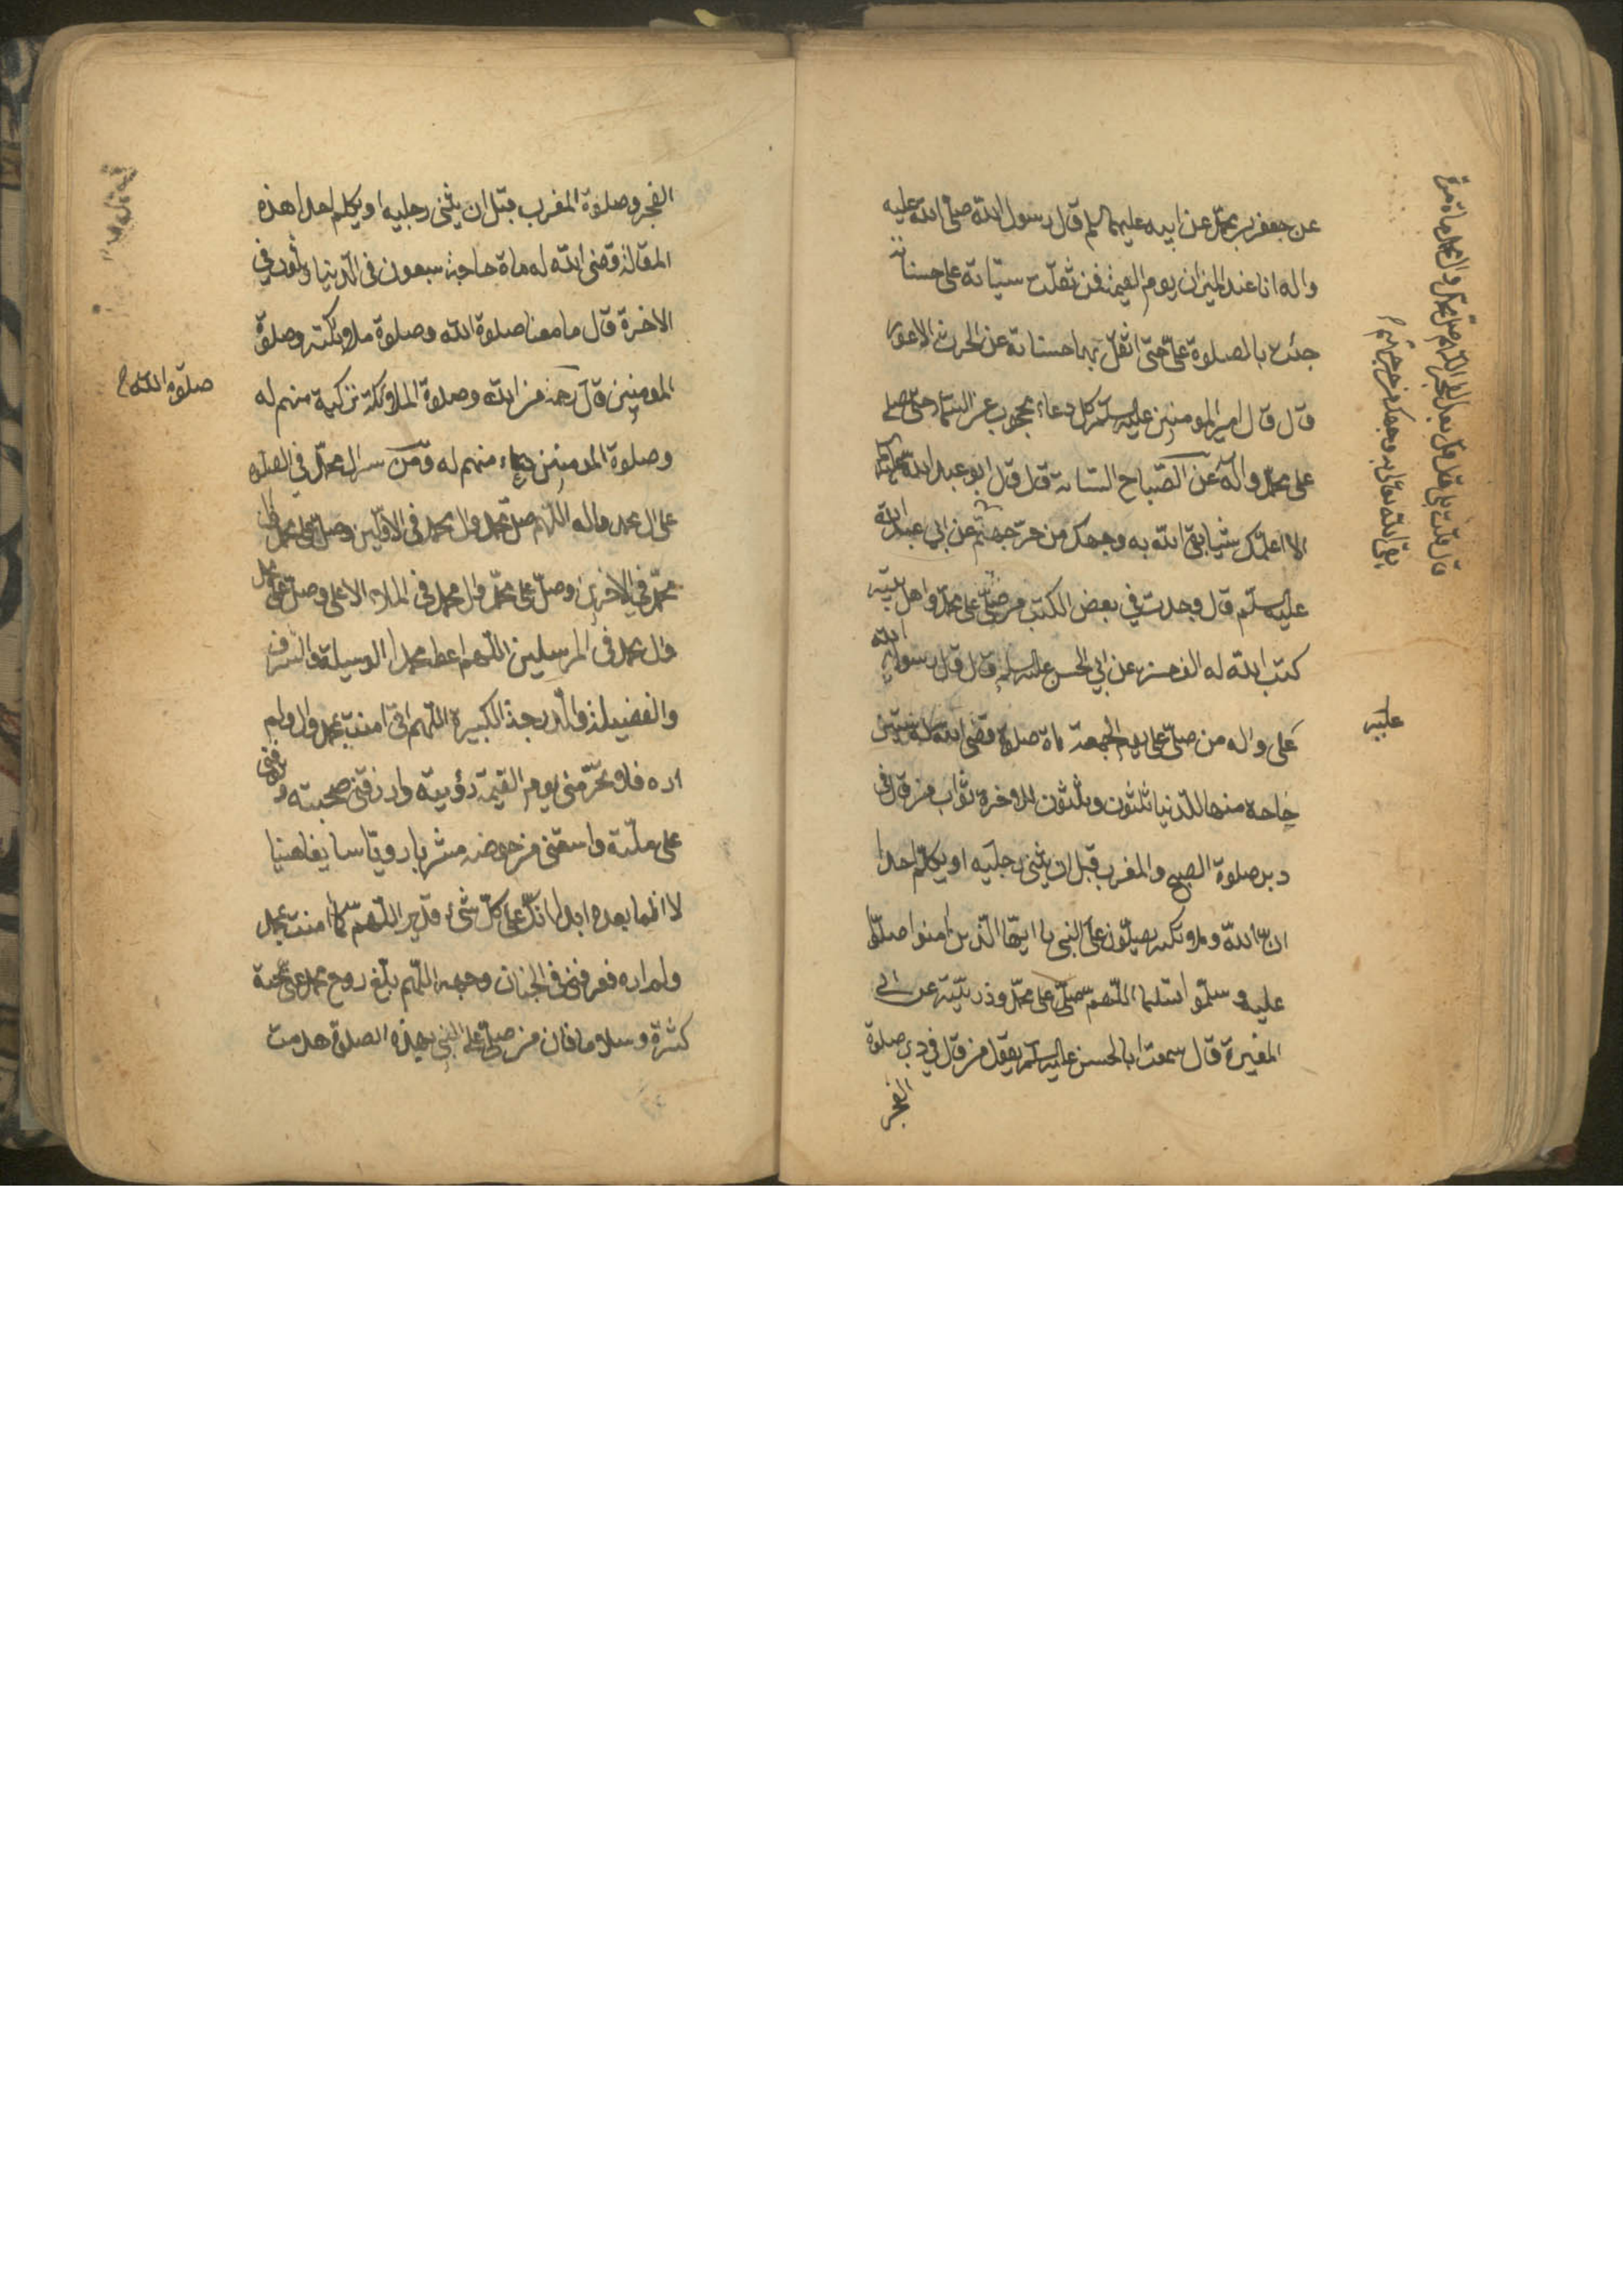 عن جعفر بن محمد عن ابيه عليهما السلم قال رسول الله صلى الله عليه
واله انا عند الميزان يوم القيمة فمن ثقلت سيئاته على حسناته
جئت بالصلوة على حتى اثقل بها حسناته عن الحرث الاعور
قال قال امير المومنين عليه السلم كل دعاء محجوب عن السماء حتى يصلى
على محمد واله عن الصباح السيابة قال قال ابو عبد الله
الا اعلمك شيئا يقى الله به وجهك من حر جهنم عن ابي عبد الله
عليه السلم قال وجدت في بعض الكتب من صلى على محمد واهل بيته
كتب الله له الف حسنة عن ابي الحسن عليه السلم قال قال رسول الله
على واله من صلى على يوم الجمعة ماة صلوة قضى الله له ستين
حاجة منها للدنيا ثلثون وثلثون للاخرة ثواب من قال في
دبر صلوة الصبح والمغرب قبل ان يثنى رجليه او يكلم احدا
ان الله وملائكته يصلون على النبي يا ايها الذين امنوا صلوا
عليه وسلموا تسليما اللهم صل على محمد وذريته عن ابي
المغيرة قال سمعت ابا الحسن عليه السلم يقول من قال في دبر صلوة
الفجر
قال قلت بلى قال قل بعد الفجر اللهم صل على محمد وال محمد ماة مرة
يقى الله تعالى به وجهك من حر جهنم
عليه
الفجر وصلوة المغرب قبل ان يثنى رجليه او يكلم احدا هذه
المقالة قضى الله له ماة حاجة سبعون في الدنيا وثلثون في
الاخرة قال ما معنا صلوة الله وصلوة ملائكته وصلوة
المومنين قال رحمة من الله وصلوة الملائكة تزكية منهم له
وصلوة المومنين دعاء منهم له ومن سر ال محمد في الصلوة
على ال محمد واله اللهم صل محمد وال محمد في الاولين وصل على محمد وال
محمد في الاخرين وصل على محمد وال محمد في الملاء الاعلى وصل على محمد
وال محمد في المرسلين اللهم اعط محمدا الوسيلة والشرف
والفضيلة والدرجة الكبيرة اللهم اني امنت بمحمد وال ولم
اره فلا تحرمني يوم القيمة رؤيته وارزقني صحبته وتوفني
على ملته واسقني من حوضه مشربا رويا سايغا هنيا
لا اظما بعده ابدا انك على كل شيء قدير اللهم كما امنت بمحمد
ولم اره فعرفني في الجنان وجهه اللهم بلغ روح محمد عني تحية
كثيرة وسلاما فان من صلى على النبي بهذه الصلوة هدمت
صلوة الله